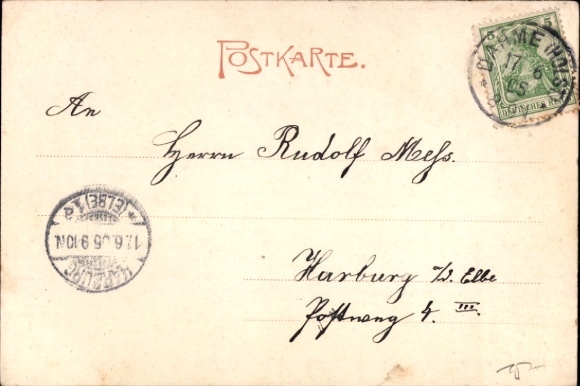 POSTKARTE.
5
DAHME (HOLST)
17 6
05
DEUTSCHES REICH
An
Herrn Rudolf Mess.
HARBURG
17.6.05 9-10N.
* (ELBE) 1 d
Harburg a/d. Elbe
Postweg 4. III.